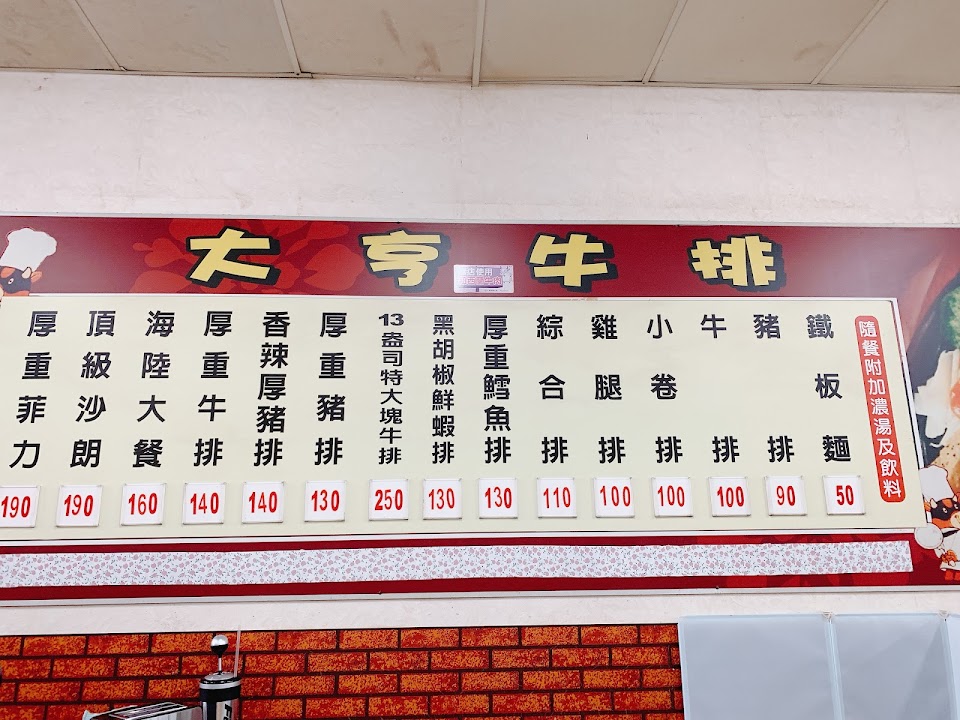 大亨牛排
店使用
隨餐附加濃湯及飲料
鐵板麵
50
豬排
90
牛排
100
小卷排
100
雞腿排
100
綜合排
110
厚重鱈魚排
130
黑胡椒鮮蝦排
130
13盎司特大塊牛排
250
厚重豬排
130
香辣厚豬排
140
厚重牛排
140
海陸大餐
160
頂級沙朗
190
厚重菲力
190